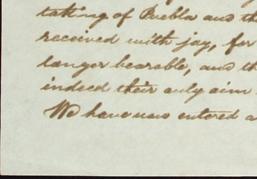 taking of Puebla and th
received with joy, for
longer bearable, and th
indeed their only aim
We have now entered a